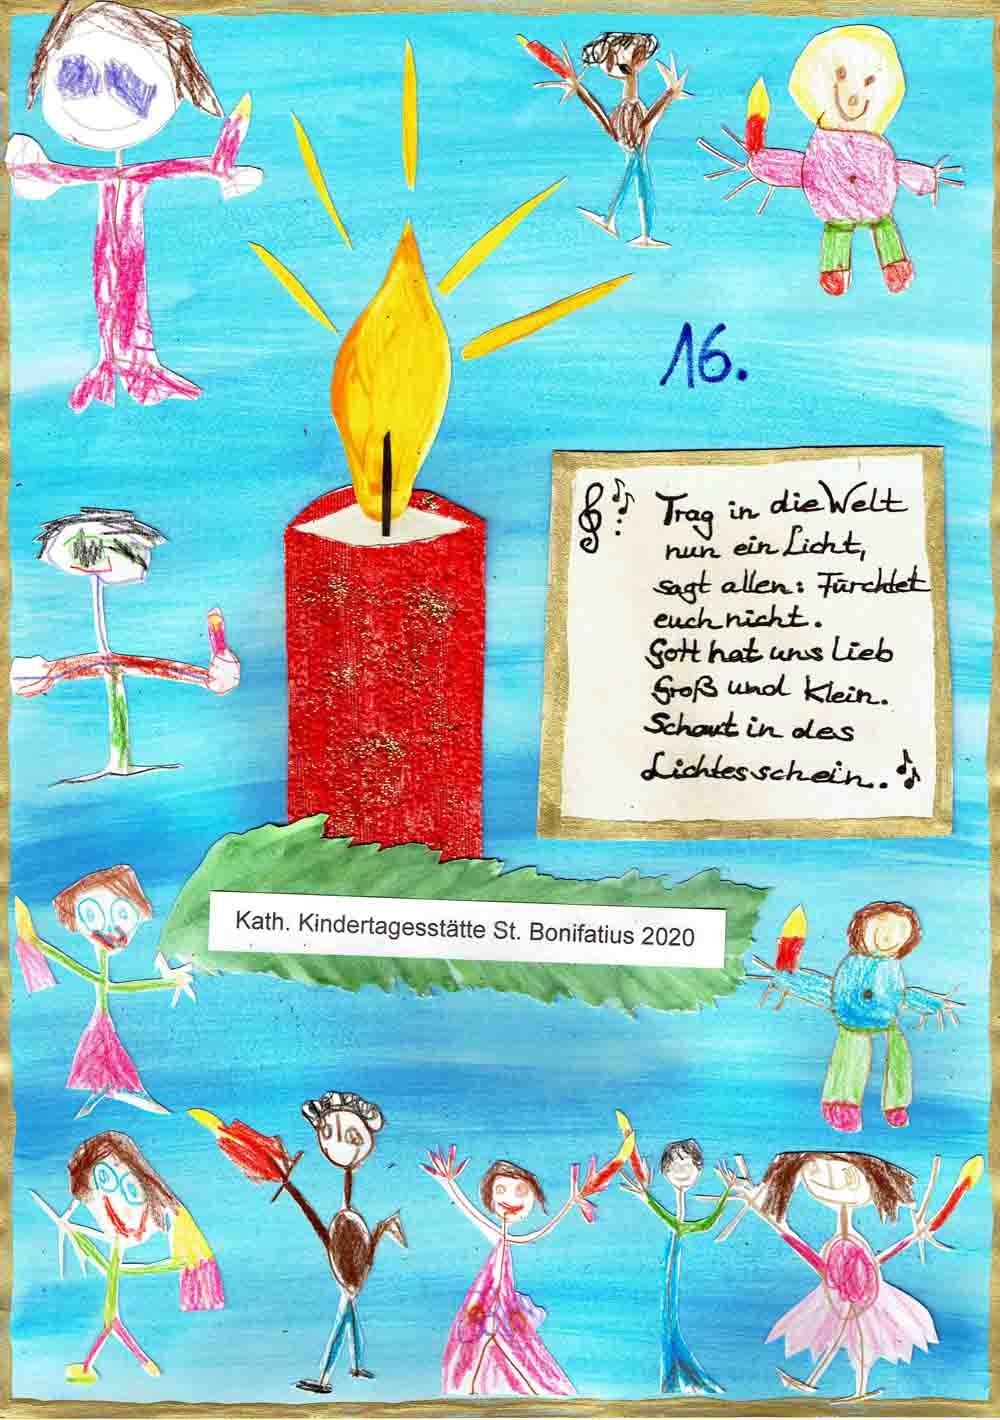 16.
Trag in die Welt
nun ein Licht,
sagt allen: Fürchtet
euch nicht.
Gott hat uns Lieb
Groß und Klein.
Schaut in des
Lichtesschein..
Kath. Kindertagesstätte St. Bonifatius 2020